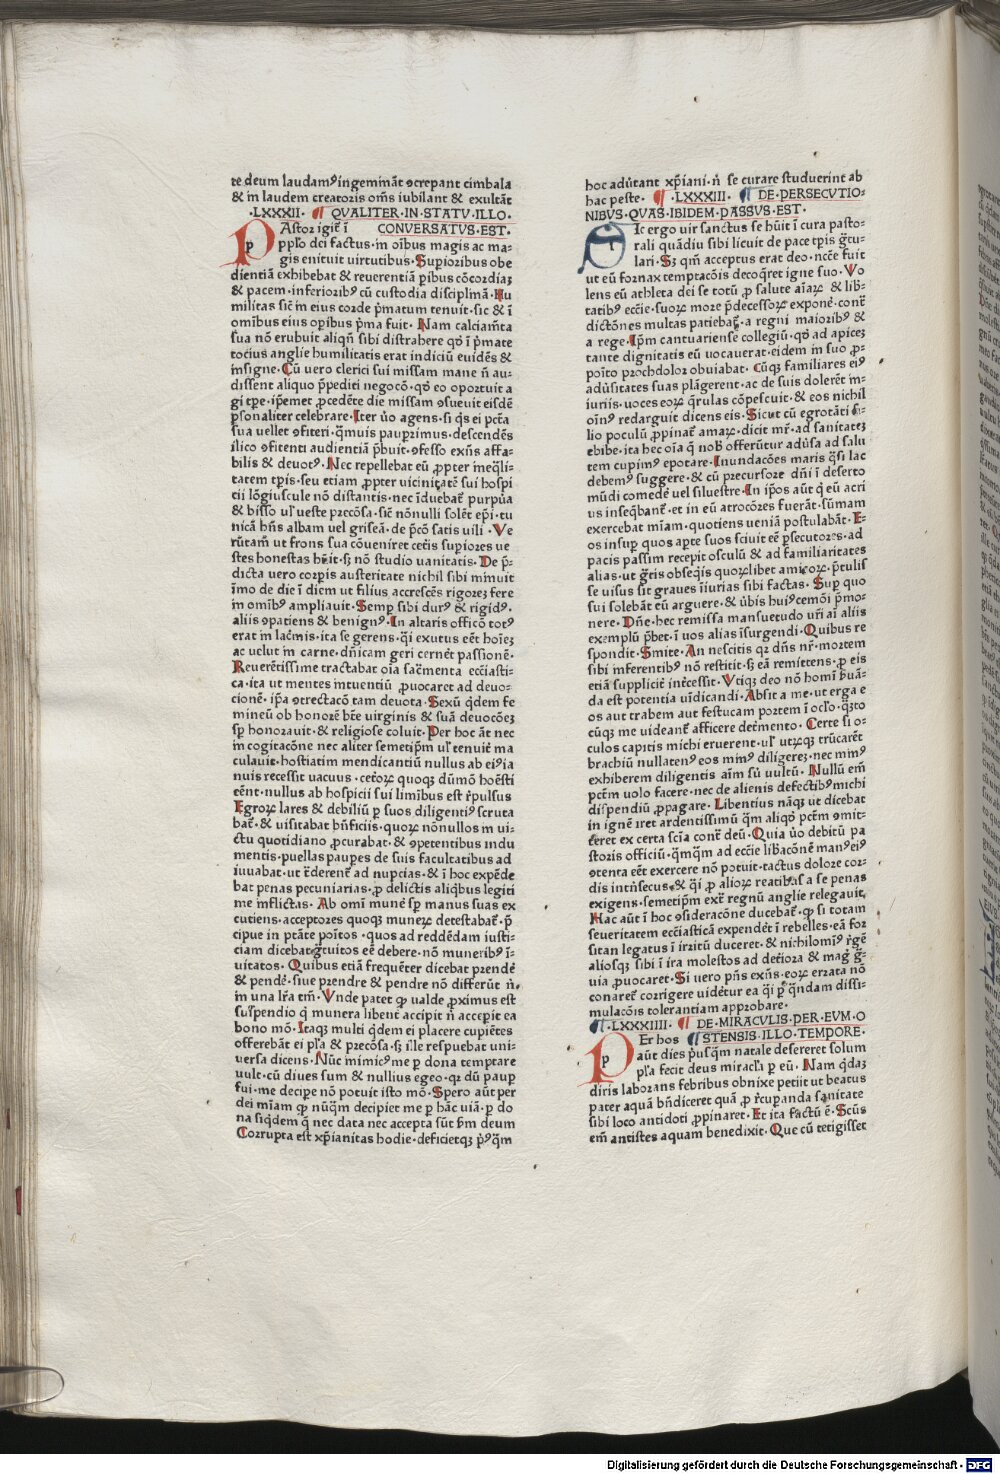 te deum laudamꝰ ingemināt ꝯcrepant cimbala
& in laudem creatoris om̄s iubilant & exultāt
·LXXXII· ¶ QVALITER·IN·STATV·ILLO·
CONVERSATVS·EST·
PAstor igit̄ ī
pp̄lo dei factus·in oībus magis ac ma-
gis enituit uirtutibus·Superioribus obe
dientiā exhibebat & reuerentiā p̄ibus cōcordiā
& pacem·inferioribꝰ cū custodia disciplinā·Hu
militas sic̄ in eius corde p̄matum tenuit·sic & ī
omībus eius opībus p̄ma fuit·Nam calciam̄ta
sua nō erubuit aliqn̄ sibi distrahere qd̓ ī p̄mate
tocius anglie humilitatis erat indiciū euidēs &
insigne·Cū uero clerici sui missam mane n̄ au-
dissent aliquo p̄pediti negocō·qd̓ eo oportuit a
gi tp̄e·ip̄emet p̄cedēte die missam ꝯsueuit eisdē
psonaliter celebrare·Iter u̓o agens·si q̄s ei pctā
sua uellet ꝯfiteri·q̄muis pauperimus·descendēs
ilico ꝯfitenti audientiā p̄buit·ꝯfesso exn̄s affa-
bilis & deuotꝰ·Nec repellebat eū ꝓpter ineq̄li-
tatem tp̄is·seu etiam ꝓpter uicinitatē sui hospi
cii lōgiuscule nō distantis·nec īduebat̄ purpua
& bisso ul̓ ueste p̄cōsa·sic̄ nōnulli solēt ep̄i·tu
nicā hn̄s albam uel griseā·de p̄cō satis uili·Ve
rūtam̄ ut frons sua cōueniret cet̄is superiores ue
stes honestas hūit·s; nō studio uanitatis·De p̄-
dicta uero corpis austeritate nichil sibi minuit
īmo de die ī diem ut filius accrescēs rigores fere
in omībꝰ ampliauit·Semp sibi durꝰ & rigidꝰ·
aliis ꝯpatiens & benignꝰ·In altaris officō totꝰ
erat in lac̄mis·ita se gerens·q̄i exutus eēt hoīes
ac uelut in carne·dn̄icam geri cernēt passionē·
Reuerētissime tractabat oīa sac̄menta ecc̄iasti-
ca·ita ut mentes intuentiū ꝓuocaret ad deuo-
cionē·ip̄a ꝯtrectacō tam deuota·Sexū q̄dem fe
mineū ob honorē bt̄e uirginis & suā deuocōez
sp honorauit·& religiose coluit·Per hoc āt nec
in cogitacōne nec aliter semetip̄m ul̓ tenuit̄ ma
culauit·hostiatim mendicantiū nullus ab eiꝰia
nuis recessit uacuus·ceteros quoq; dūmō hoēsti
cēnt·nullus ab hospicii sui limībus est r̄pulsus
Egrorum lares & debiliū p suos diligentiꝰ scruta
bat̄·& uisitabat bn̄ficiis·quorum nōnullos in ui-
ctu quotidiano ꝓcurabat·& ꝯpetentibus indu
mentis·puellas paupes de suis facultatibus ad
iuuabat·ut t̄derent̄ ad nupcias·& ī hoc expēde
bat penas pecuniarias·ꝓ delictis aliq̄bus legiti
me inflictas·Ab omī munē sp manus suas ex
cutiens·acceptores quoq; munerum detestabat̄·p̄
cipue in ptāte poītos·quos ad reddēdam iusti-
ciam dicebat·ḡtuitos eē debere·nō muneribꝰ ī-
uitatos·Quibus etiā frequēter dicebat prendē
& pendē·siue prendre & pendre nō differūt n̄
in una lr̄a tm̄·Vnde patet ꝙ ualde ꝓximus est
suspendio q̄ munera libent̄ accipit n̄ accepit ea
bono mō·Itaq; multi q̄dem ei placere cupiētes
offerebāt ei pl̓a & p̄cōsa·s; ille respuebat uni-
uersa dicens·Nūc inimicꝰ me p dona temptare
uult·cū diues sum & nullius egeo·qr̄ dū paup
fui·me decipe nō potuit isto mō·Spero aūt per
dei mīam ꝙ nūq̄m decipiet me p hāc uiā·p do
na siqd̄em q̄ nec data nec accepta sūt p̄m deum
Corrupta est xp̄ianitas hodie·deficietq; p̄ꝰq̄m
hoc adūtant xp̄iani·n̄ se curare studuerint ab
hac peste· ¶ ·LXXXIII· ¶ DE·PERSECVTIO-
NIBVS·QVAS·IBIDEM·PASSVS·EST·
SIc ergo uir sanctus se hūit ī cura pasto-
rali quādiu sibi licuit de pace tp̄is ḡtu-
lari·S; qm̄ acceptus erat deo·ncc̄e fuit
ut eū fornax temptacōis decoq̄ret igne suo·Vo
lens eū athleta dei se totū ꝓ salute aīarum & lib̄-
tatibꝰ ecc̄ie·suorum more p̄decessorum exponē·cont̄
dictōnes multas patiebat̄·a regni maioribꝰ &
a rege·Ip̄m cantuariense collegiū·qd̓ ad apicez
tante dignitatis eū uocauerat·eidem in suo ꝓ-
poīto prochdolor obuiabat·cūq; familiares eiꝰ
adūsitates suas plāgerent·ac de suis dolerēt in-
iuriis·uoces eorum q̄rulas cōpescuit·& eos nichil
oīnꝰ redarguit dicens eis·Sicut cū egrotāti fi-
lio poculū ꝓpinat̄ amarum·dicit mr̄·ad sanitatez
ebibe·ita hec oīa q̄ nob̓ offerūtur adūsa ad salu
tem cupimꝰ epotare·Inundacōes maris q̄si lac
debemꝰ suggere·& cū precursore dn̄i ī deserto
mūdi comedē uel siluestre·In ip̄os aūt q̄ eū acri
us inseq̄bant̄·et in eū atrocōres fuerāt·sūmam
exercebat mīam·quotiens ueniā postulabāt·E-
os insup quos apte suos sciuit eē psecutores·ad
pacis passim recepit osculū & ad familiaritates
alias·ut ḡtis obseq̄is quorumlibet amicorum·p̄tulis
se uisus sit graues īiurias sibi factas·Sup quo
sui solebāt eū arguere·& ūbis huiꝰcemōi p̄mo-
nere·Dn̄e·hec remissa mansuetudo ur̄i aī aliis
exemplū p̄bet·ī uos alias īsurgendi·Quibus re
spondit·Smite·An nescitis qr̄ dn̄s nr̄·mortem
sibi inferentibꝰ nō restitit·s; eā remittens·ꝓ eis
etiā supplicit̄ int̄cessit·Vtiq; deo nō homī p̄uā-
da est potentia uīdicandi·Absit a me·ut erga e
os aut trabem aut festucam portem ī oc̓lo·q̄nto
cūq; me uideant̄ afficere det̄mento·Certe si o-
culos capitis michi eruerent·ul̓ utrumq; trūcarēt
brachiū nullatenꝰ eos minꝰ diligerez·nec minꝰ
exhiberem diligentis aīm sú uultū·Nullū em̄
pctm̄ uolo facere·nec de alienis defectibꝰ michi
dispendiū ꝓpagare·Libentius nāq; ut dicebat
in ignē iret ardentissimū q̄m aliqd̓ pctm̄ ꝯmit-
teret ex certa scīa cont̄ deū·Quia u̓o debitū pa
storis officiū·q̄mq̄m ad ecc̄ie lib̓acōnē manꝰeiꝰ
ꝯtenta eēt exercere nō potuit·tactus dolore cor-
dis int̄nsecus·& q̄i ꝓ aliorum reatibus a se penas
exigens·semetip̄m ext̄ regnū anglie relegauit·
Hac aūt ī hoc ꝯsideracōne ducebat̄·ꝙ si totam
seueritatem ecc̄iasticā expendēt ī rebelles·eā for
sitan legatus ī irritū duceret·& nichilomīꝰ r̄gē
aliosq; sibi ī ira molestos ad det̄iora & mag̓ ḡ-
uia ꝓuocaret·Si uero pn̄s exn̄s·eorum errata nō
conaret̄ corrigere uidētur ea q̄i p q̄ndam dissi-
mulacōis tolerantiam approbare·
¶·LXXXIIII· ¶ DE·MIRACVLIS·PER·EVM·O
STENSIS·ILLO·TEMPORE·
PEr hos
aūt dies p̄usq̄m natale desereret solum
pl̓a fecit deus miracl̓a p eū·Nam q̄daz
diris laborans febribus obnixe petiit ut beatus
pater aquā bn̄diceret quā ꝓ r̄cupanda sanitate
sibi loco antidoti ꝓpinaret·Et ita factū ē·Scūs
em̄ antistes aquam benedixit·Que cū tetigisset
Digitalisierung gefördert durch die Deutsche Forschungsgemeinschaft - DFG